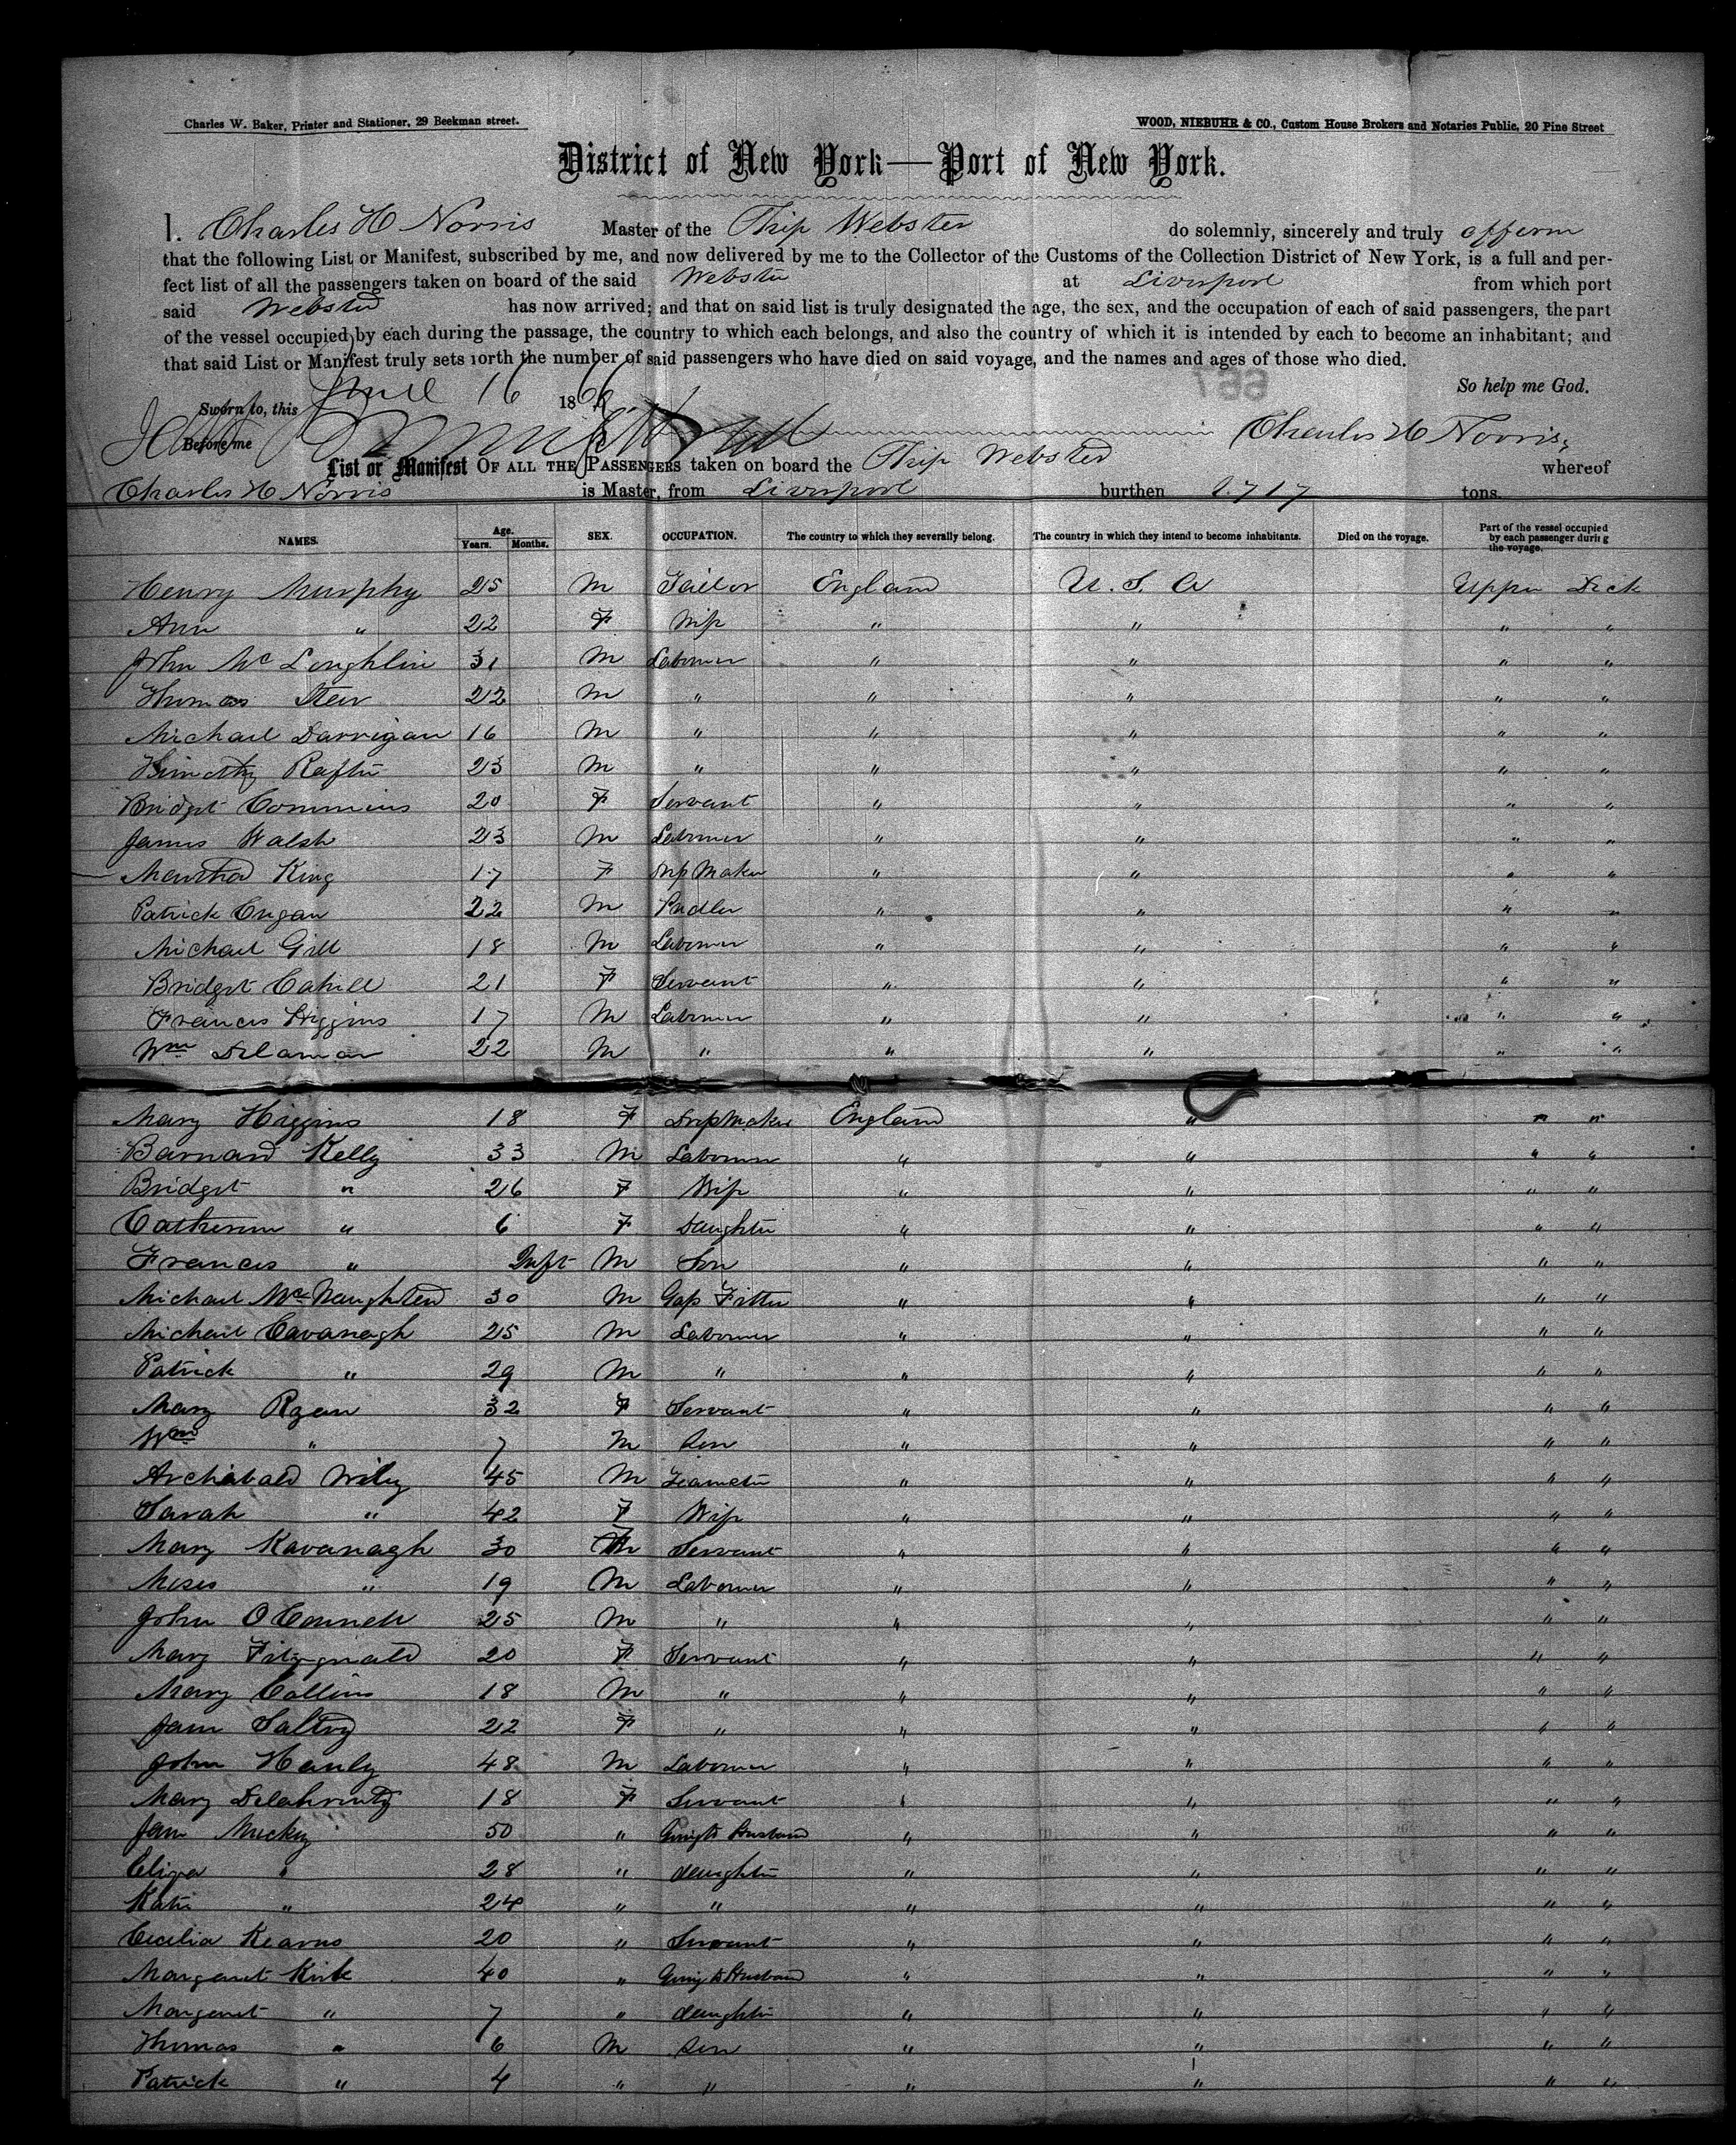 Charles W. Baker, Printer and Stationer, 29 Beekman street. WOOD, NIEBUHR & CO., Custom House Brokers and Notaries Public, 20 Pine Street
District of New York—Port of New York.
I. Charles H Norris Master of the Ship Webster do solemnly, sincerely and truly affirm
that the following List or Manifest, subscribed by me, and now delivered by me to the Collector of the Customs of the Collection District of New York, is a full and per-
fect list of all the passengers taken on board of the said Webster at Liverpool from which port
said Webster has now arrived; and that on said list is truly designated the age, the sex, and the occupation of each of said passengers, the part
of the vessel occupied by each during the passage, the country to which each belongs, and also the country of which it is intended by each to become an inhabitant; and
that said List or Manifest truly sets forth the number of said passengers who have died on said voyage, and the names and ages of those who died.
So help me God.
Sworn to, this June 16 1866
Before me Charles H Norris
List or Manifest OF ALL THE PASSENGERS taken on board the Ship Webster whereof
Charles H Norris is Master, from Liverpool burthen 1717 tons.
NAMES. Age. Years. Months. SEX. OCCUPATION. The country to which they severally belong. The country in which they intend to become inhabitants. Died on the voyage. Part of the vessel occupied by each passenger during the voyage.
Henry Murphy 25 M Tailor England U. S. A Upper Deck
Ann " 22 F Wife " " " "
John Mc Loughlin 31 M Laborer " " " "
Thomas 22 M " " " " "
Michael Darrigan 16 M " " " " "
Timothy Rafter 23 M " " " " "
Bridget Commins 20 F Servant " " " "
James Walsh 23 M Laborer " " " "
Martha King 17 F Drs Maker " " " "
Patrick 22 M Pudler " " " "
Michael Gill 18 M Laborer " " " "
Bridget Cahill 21 F Servant " " " "
Francis Higgins 17 M Laborer " " " "
Wm Delamar 22 M " " " " "
Mary Higgins 18 F Drs Maker England " " "
Barnard Kelly 33 M Laborer " " " "
Bridget " 26 F Wife " " " "
Catherine " 6 F Daughter " " " "
Francis " Inft M Son " " " "
Michael McNaughten 30 M Gas Fitter " " " "
Michael Cavanagh 25 M Laborer " " " "
Patrick " 29 M " " " " "
Mary Ryan 32 F Servant " " " "
Wm " 7 M Son " " " "
Archibald Wiley 45 M Teamster " " " "
Sarah " 42 F Wife " " " "
Mary Kavanagh 30 F Servant " " " "
Moses " 19 M Laborer " " " "
John O Connell 25 M " " " " "
Mary Fitzgerald 20 F Servant " " " "
Mary Collins 18 M " " " " "
Jane 22 F " " " " "
John Hanly 48 M Laborer " " " "
Mary Delahunty 18 F Servant " " " "
Jane Mucky 50 " Going to Husband " " " "
Eliza " 28 " daughter " " " "
Kate " 24 " " " " " "
Cecilia Kearns 20 " Servant " " " "
Margaret Kirk 40 " Going to Husband " " " "
Margaret " 7 " daughter " " " "
Thomas " 6 M Son " " " "
Patrick " 4 " " " " " "